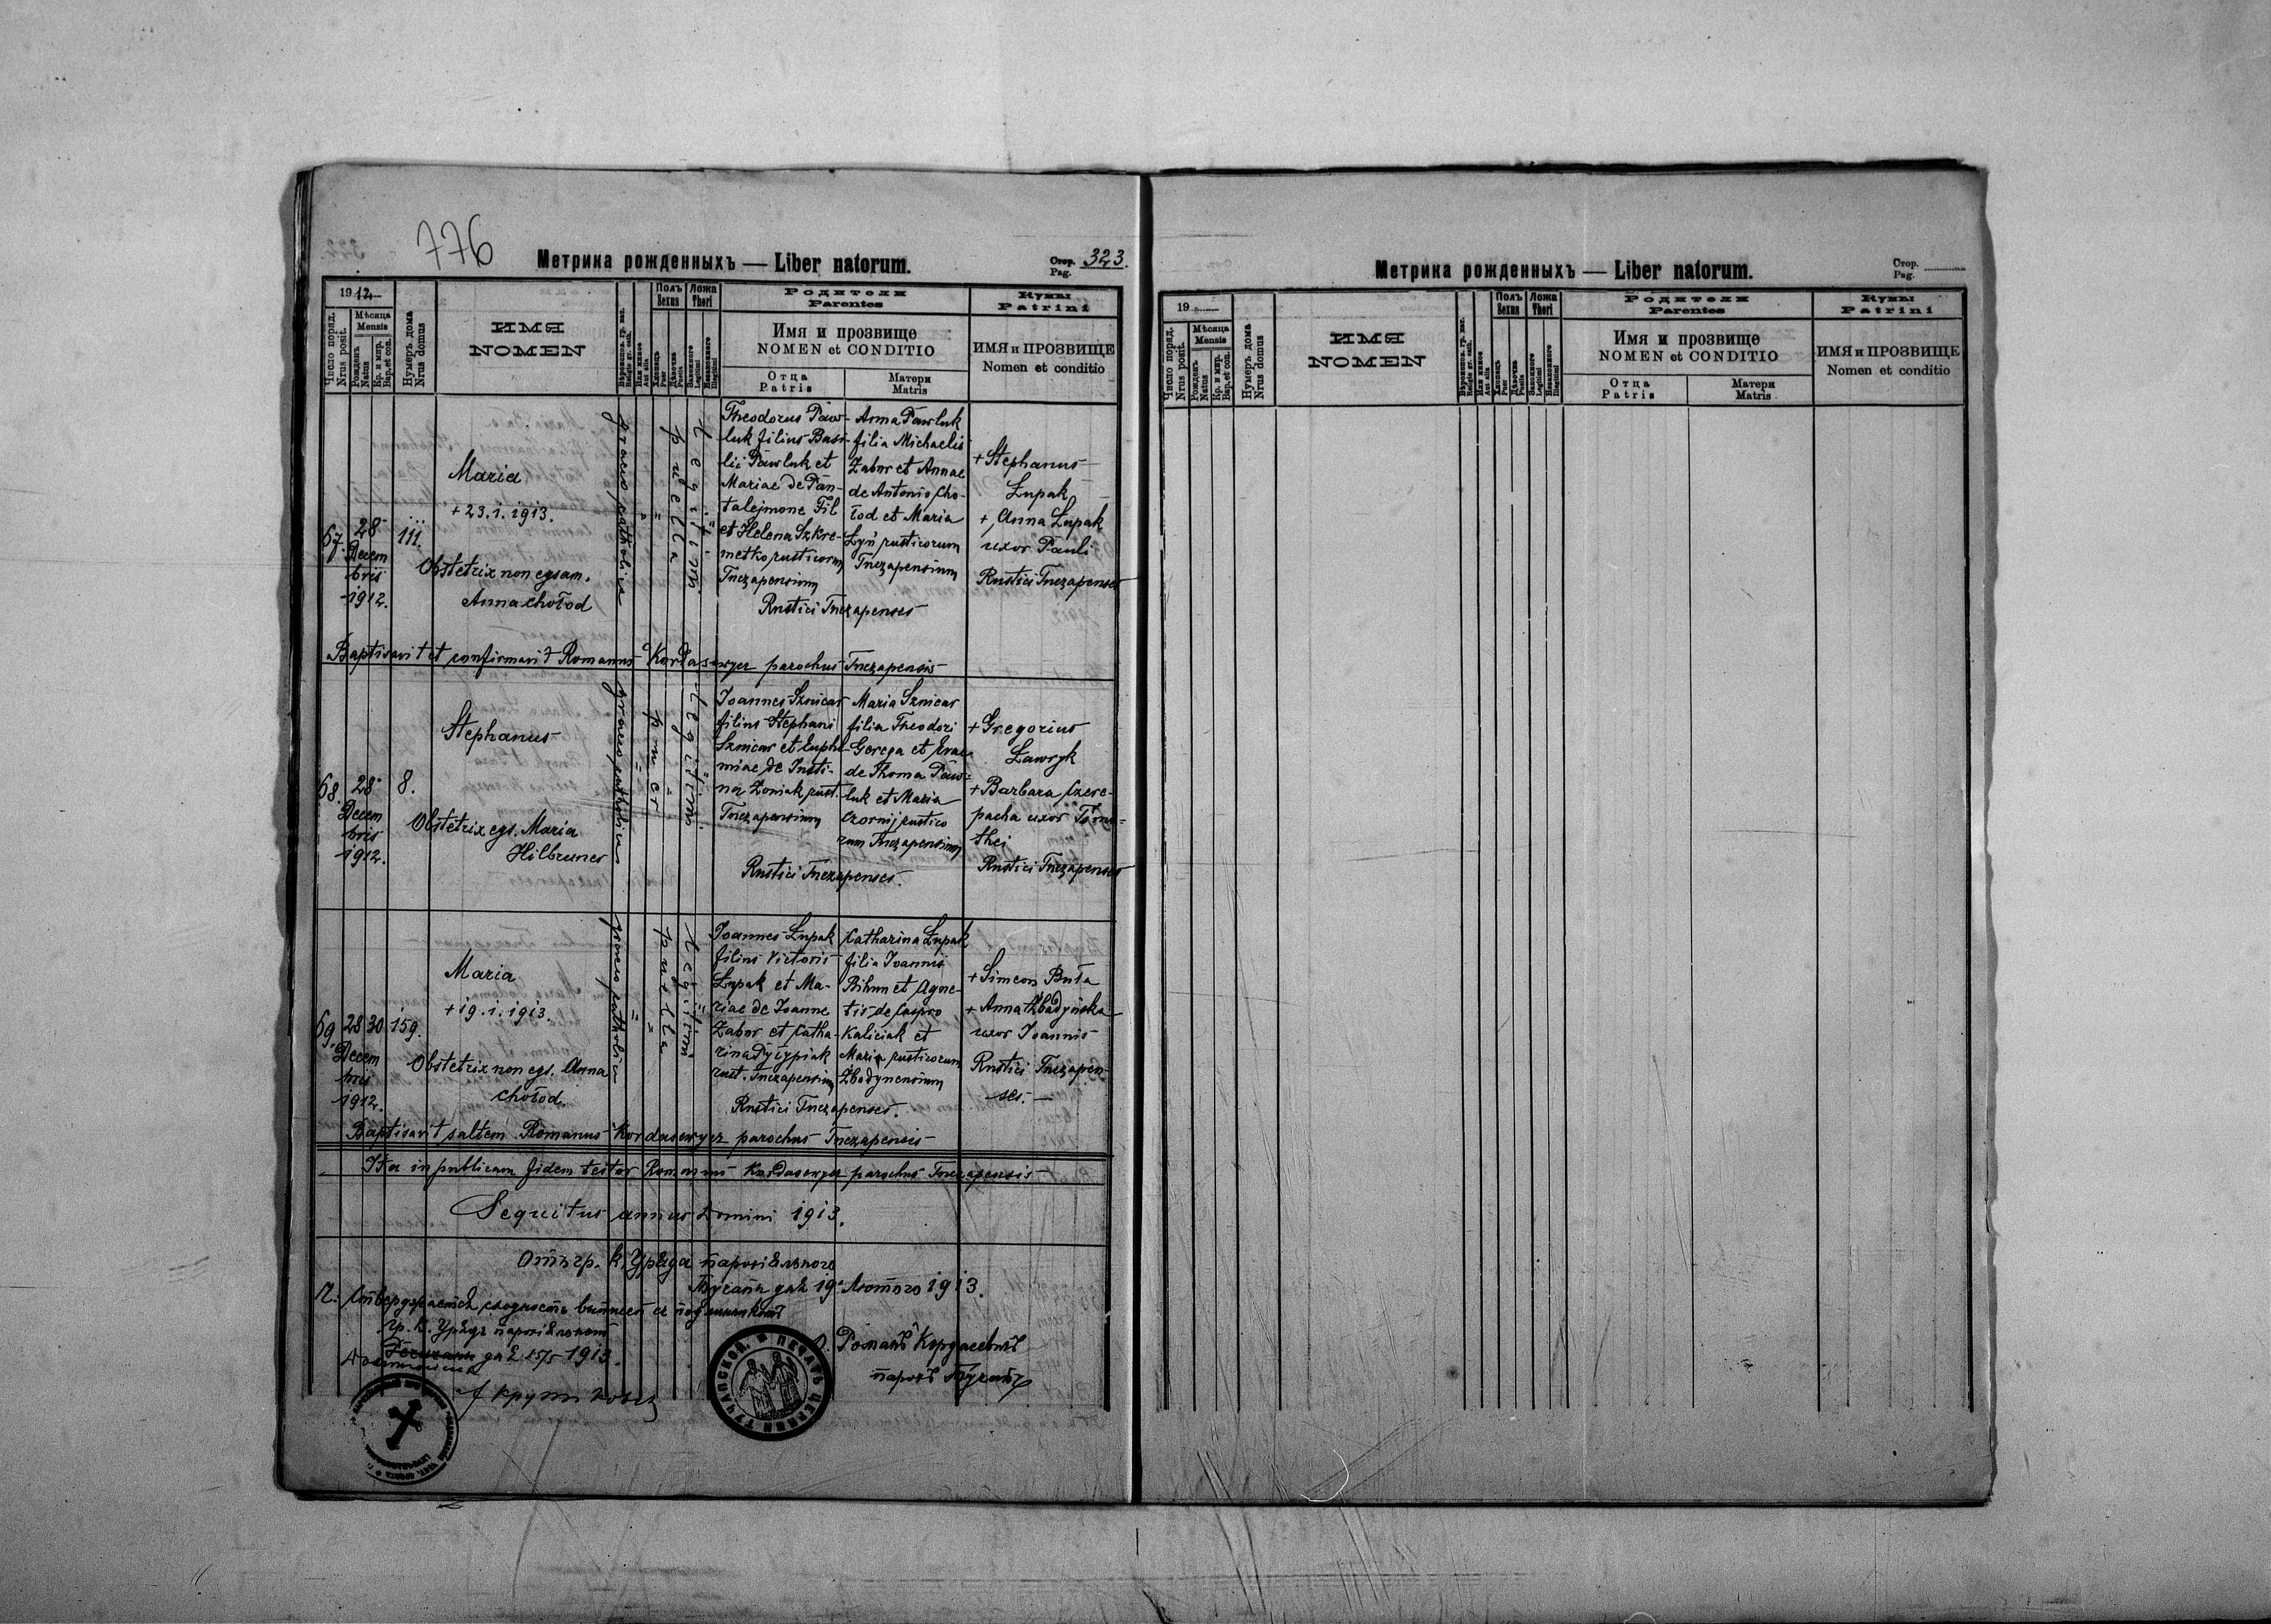 776
Метрика рожденныхъ — Liber natorum.
Стор. Pag. 323.
1912
Число поряд. Nrus posit.
Мѣсяца Mensis
Рожденъ Natus
Кр. и мир. Bap. et con.
Нумеръ дома Nrus domus
ИМЯ
NOMEN
Или иншое Aut alia
Полъ Sexus
Хлопець Puer
Дѣвочка Puella
Ложа Thori
Законного Legitimi
Незаконного Illegitimi
Родители
Parentes
Имя и прозвище
NOMEN et CONDITIO
Отца
Patris
Матери
Matris
Кумы
Patrini
ИМЯ и ПРОЗВИЩЕ
Nomen et conditio
67.
28
Decem
bris
1912.
111.
Maria
+ 23. 1. 1913.
Obstetrix non egsam.
Anna Chołod
graeco catholica
puella
legitimi
Theodorus Paw-
luk filius Basi-
lii Pawluk et
Mariae de Pan-
talejmone Fil
et Helena Szkre-
metko rusticorum
Tuczapensium
Anna Pawluk
filia Michaelis
Zabur et Annae
de Antonio Cho-
łod et Maria
Łyń rusticorum
Tuczapensium
Rustici Tuczapenses
+ Stephanus
Łupak
+ Anna Łupak
uxor Pauli
Rustici Tuczapenses
Baptisavit et confirmavit Romanus Kordasewycz parochus Tuczapensis
68.
28
Decem
bris
1912.
8.
Stephanus
Obstetrix egs. Maria
Hilbruner
graeco catholicus
puer
legitimi
Joannes Sznicar
filius Stephani
Sznicar et Euphe-
miae de Justi-
no Zoniak rust.
Tuczapensium
Maria Sznicar
filia Theodori
Gerega et Evae
de Thoma Paw-
luk et Maria
Czornij rustico
rum Tuczapensium
Rustici Tuczapenses.
+ Gregorius
Ławryk
+ Barbara Czere-
pacha uxor Timo-
thei
Rustici Tuczapenses
69.
28 30
Decem
bris
1912.
159.
Maria
+ 19. 1. 1913.
Obstetrix non egs. Anna
Chołod.
graeco catholica
puella
legitimi
Joannes Łupak
filius Victoris
Łupak et Ma-
riae de Joanne
Zabur et Catha-
rina Pyłypiak
rust. Tuczapensium
Catharina Łupak
filia Joannis
Bihun et Agne-
tis de Caspro
Kaliciak et
Maria rusticorum
Zbadynensium
Rustici Tuczapenses.
+ Simeon Buła
+ Anna Zbadyńska
uxor Joannis
Rustici Tuczapen-
ses. —
Baptisavit saltem Romanus Kordasewycz parochus Tuczapensis
Ita in publicam fidem testor Romanus Kordasewycz parochus Tuczapensis
Sequitur annus Domini 1913.
Отъ гр. к. Уряда парохіяльного
Тучапы дня 19 Лютого 1913.
гр. к. Урядъ парохіяльный
1913.
Романъ Кордасевичъ
парохъ Тучапъ
ПЕЧАТЬ ЦЕРКВИ ТУЧАПСКОЙ.
Метрика рожденныхъ — Liber natorum.
Стор. Pag.
19
Число поряд. Nrus posit.
Мѣсяца Mensis
Рожденъ Natus
Кр. и мир. Bap. et con.
Нумеръ дома Nrus domus
ИМЯ
NOMEN
Или иншое Aut alia
Полъ Sexus
Хлопець Puer
Дѣвочка Puella
Ложа Thori
Законного Legitimi
Незаконного Illegitimi
Родители
Parentes
Имя и прозвище
NOMEN et CONDITIO
Отца
Patris
Матери
Matris
Кумы
Patrini
ИМЯ и ПРОЗВИЩЕ
Nomen et conditio